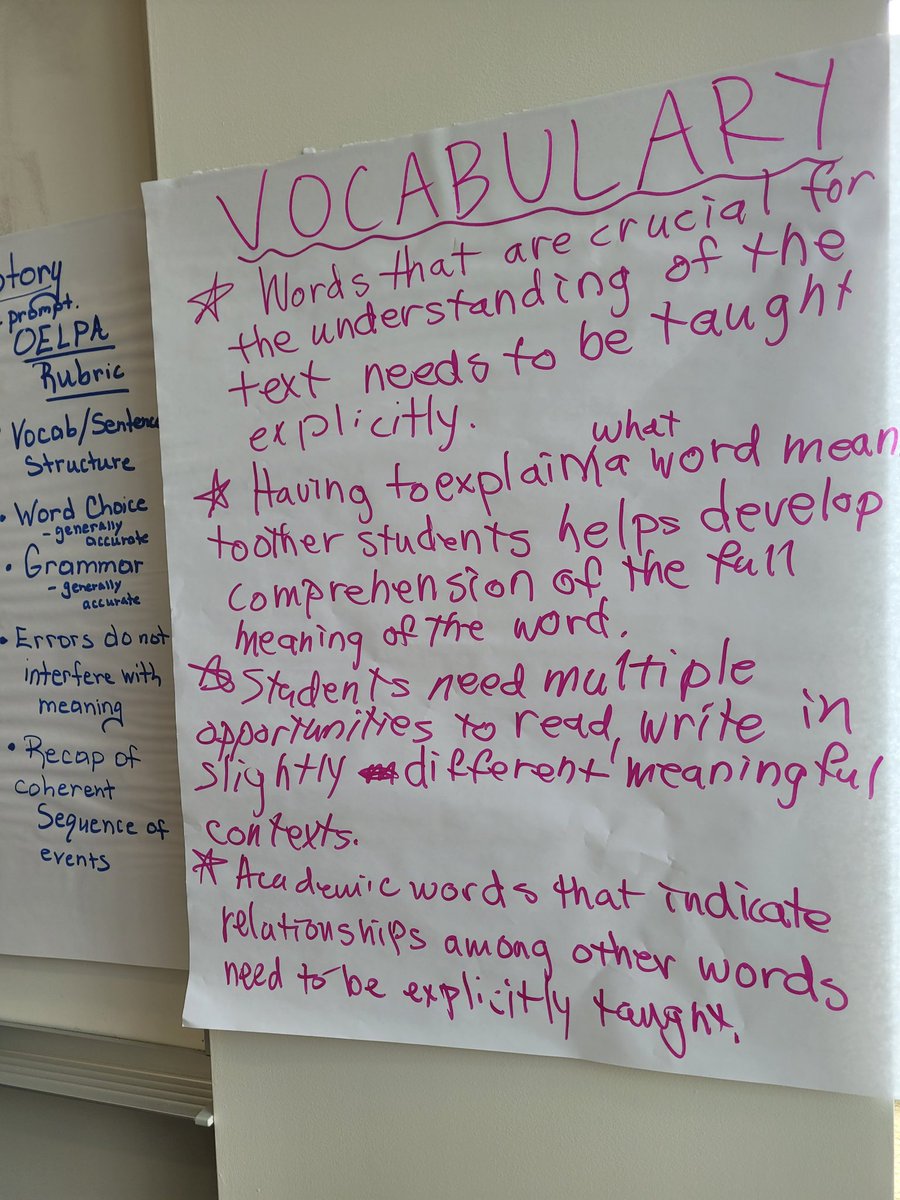 story
- prompt.
OELPA
Rubric
• Vocab/Sentence
Structure
• Word Choice
- generally
accurate
• Grammar
- generally
accurate
• Errors do not
interfere with
meaning
• Recap of
coherent
Sequence of
events
VOCABULARY
☆ Words that are crucial for
the understanding of the
text needs to be taught
explicitly.
what
☆ Having to explain a word mean
to other students helps develop
comprehension of the full
meaning of the word.
☆ Students need multiple
opportunities to read, write in
slightly different meaningful
contexts.
☆ Academic words that indicate
relationships among other words
need to be explicitly taught.